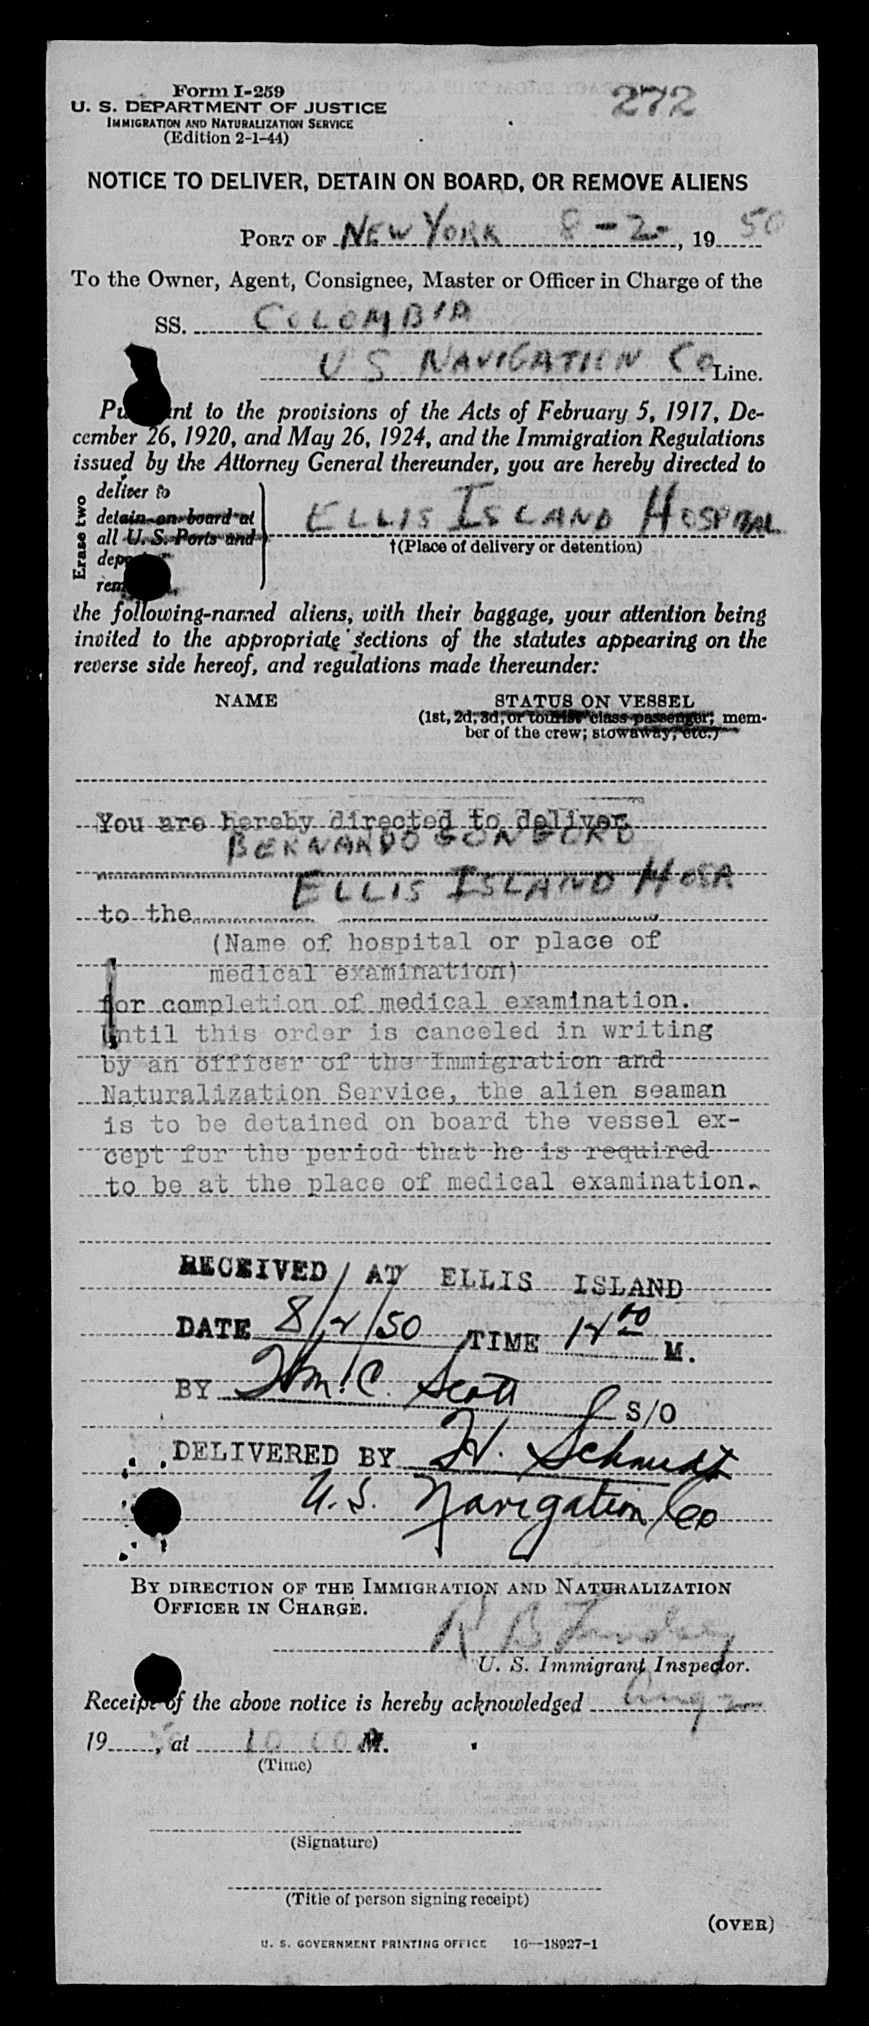 Form I-259
272
U. S. DEPARTMENT OF JUSTICE
IMMIGRATION AND NATURALIZATION SERVICE
(Edition 2-1-44)
NOTICE TO DELIVER, DETAIN ON BOARD, OR REMOVE ALIENS
PORT OF NEW YORK 8-2-, 19 50
To the Owner, Agent, Consignee, Master or Officer in Charge of the
SS. COLOMBIA
U S NAVIGATION Co Line.
to the provisions of the Acts of February 5, 1917, De-
cember 26, 1920, and May 26, 1924, and the Immigration Regulations
issued by the Attorney General thereunder, you are hereby directed to
Erase two
deliver to
detain on board at
all U. S. Ports and
ELLIS ISLAND HOSPITAL
†(Place of delivery or detention)
the following-named aliens, with their baggage, your attention being
invited to the appropriate sections of the statutes appearing on the
reverse side hereof, and regulations made thereunder:
NAME
STATUS ON VESSEL
(1st, 2d, 3d, or tourist class passenger; mem-
ber of the crew; stowaway, etc.)
You are hereby directed to deliver
BERNARDO
ELLIS ISLAND HOSP
to the
(Name of hospital or place of
medical examination)
for completion of medical examination.
Until this order is canceled in writing
by an officer of the Immigration and
Naturalization Service, the alien seaman
is to be detained on board the vessel ex-
cept for the period that he is required
to be at the place of medical examination.
RECEIVED AT ELLIS ISLAND
DATE 8/2/50 TIME 12 00 M.
BY Wm. C. Scott
S/O
DELIVERED BY W. Schmidt
U.S. Navigation Co
BY DIRECTION OF THE IMMIGRATION AND NATURALIZATION
OFFICER IN CHARGE.
R B
U. S. Immigrant Inspector.
Receipt of the above notice is hereby acknowledged Aug 2
19 50, at 10 00 M.
(Time)
(Signature)
(Title of person signing receipt)
(OVER)
U. S. GOVERNMENT PRINTING OFFICE 16—18927-1